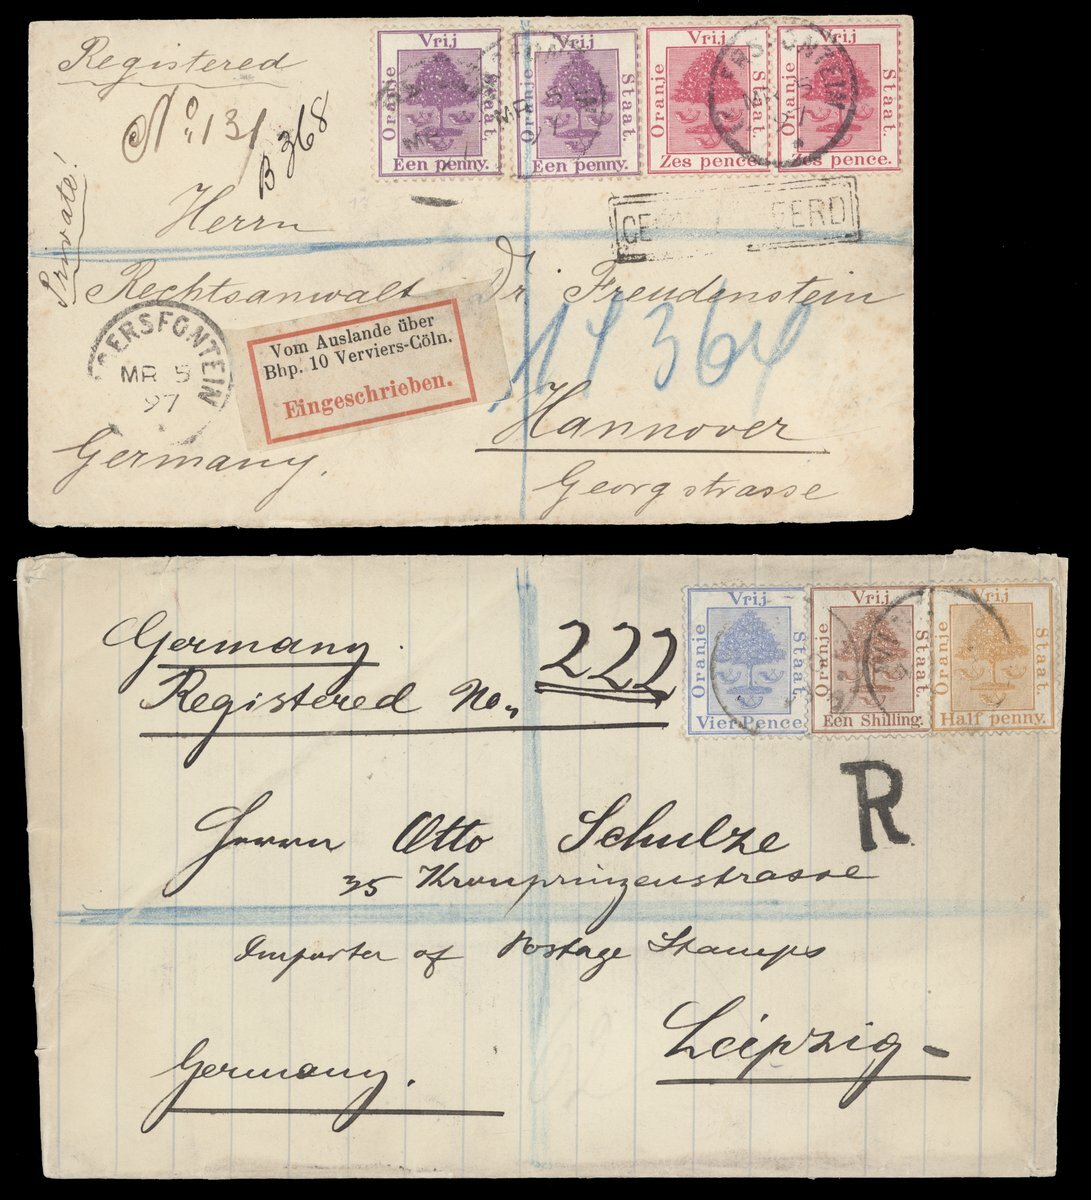 Registered
No. 131
B 368
Private!
Vrij
Oranje
Staat.
Een penny.
Vrij
Oranje
Staat.
Een penny.
Vrij
Oranje
Staat.
Zes pence.
Vrij
Oranje
Staat.
Zes pence.
MR 5
97
Herrn
Rechtsanwalt Dr. Freudenstein
ERSFONTEIN
MR 5
97
Vom Auslande über
Bhp. 10 Verviers-Cöln.
Eingeschrieben.
364
Hannover
Germany.
Georgstrasse
Germany.
Registered No. 222
Vrij
Oranje
Staat.
Vier Pence
Vrij
Oranje
Staat.
Een Shilling.
Vrij
Oranje
Staat.
Half penny.
R
Herrn Otto Schulze
35 Kronprinzenstrasse
Importer of Postage Stamps
Leipzig
Germany.
62